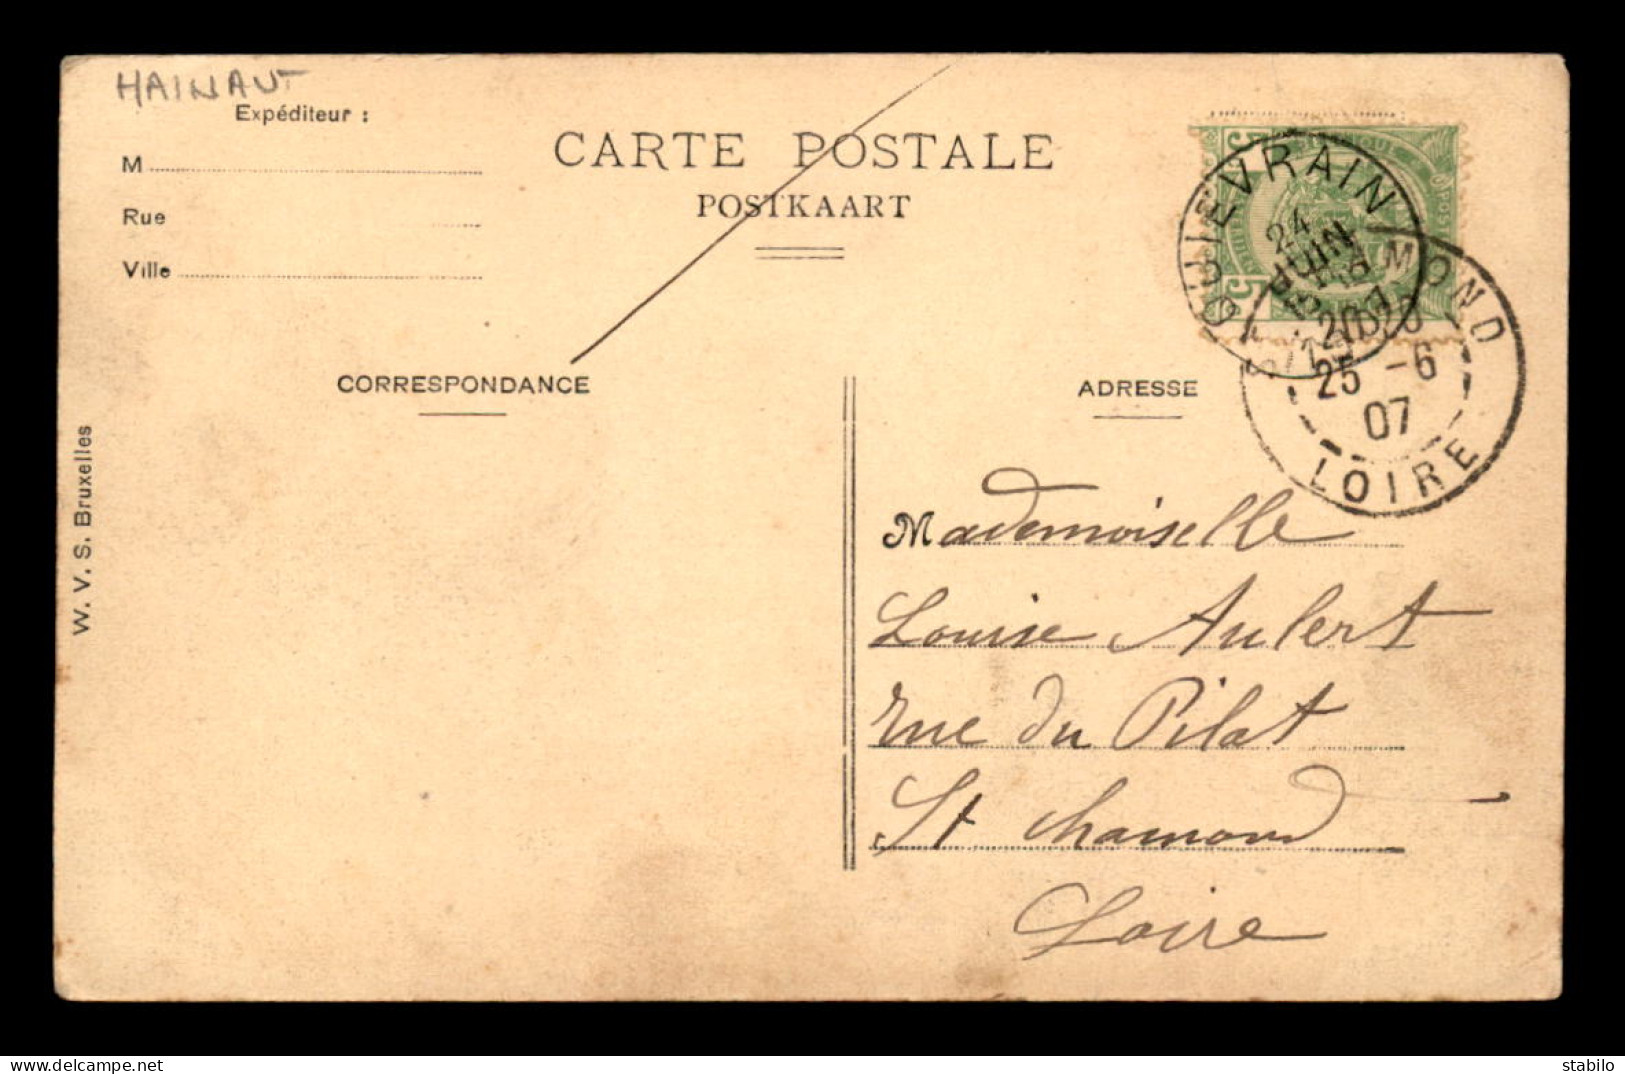 HAINAUT
Expéditeur :
M
Rue
Ville
CARTE POSTALE
POSTKAART
CORRESPONDANCE
ADRESSE
W. V. S. Bruxelles
5
5
QUIEVRAIN
24
JUIN
07
MOND
20
25 -6
07
LOIRE
Mademoiselle
Louise Aulert
rue du Pilat
St Chamond
Loire
delcampe.net
stabilo